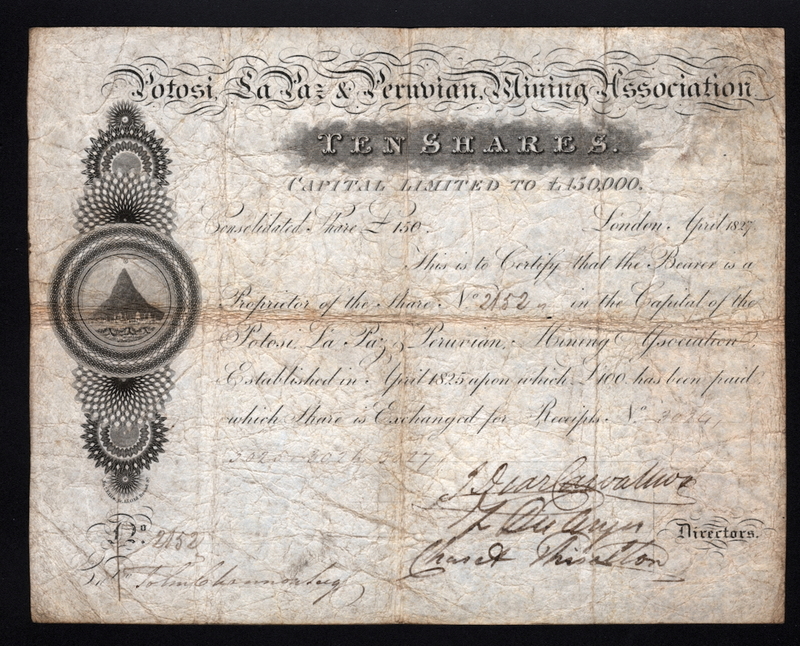 Potosi, La Paz & Peruvian, Mining Association
TEN SHARES.
CAPITAL LIMITED TO £150,000.
Consolidated Share £150. London April 1827
This is to Certify that the Bearer is a
Proprietor of the Share No. 2152 in the Capital of the
Potosi, La Paz, & Peruvian, Mining Association,
Established in April 1825 upon which £100 has been paid
which Share is Exchanged for Receipts No.
Directors.
No. 2152